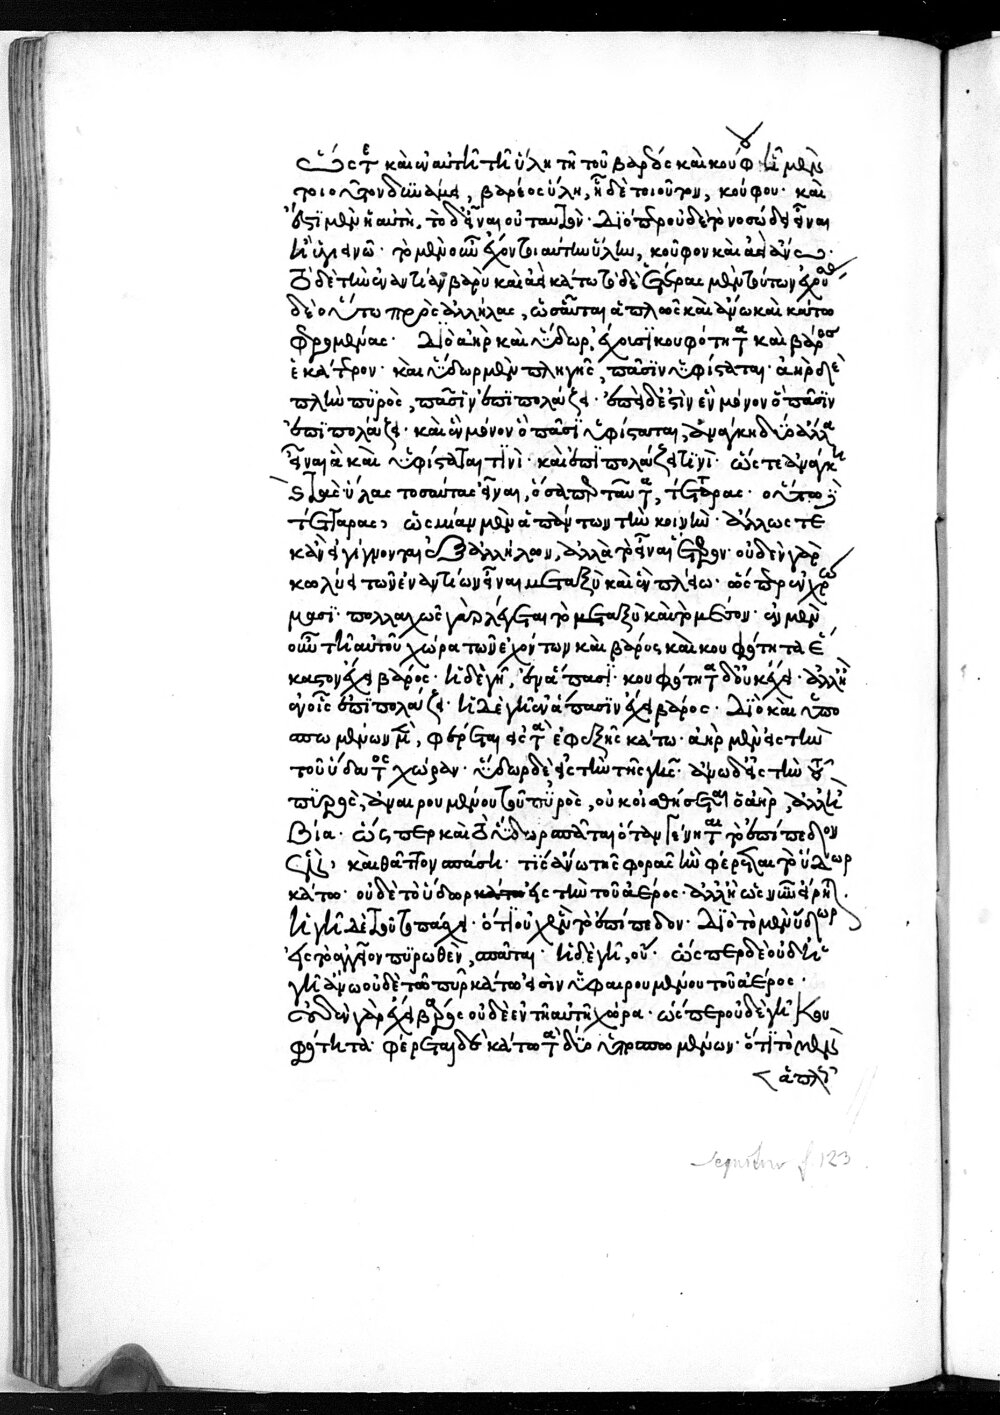 Ὥστε καὶ ἐν αὐτῇ τῇ ὕλῃ τῇ τοῦ βαρέος καὶ κούφου ᾗ μὲν
τοιοῦτον δυνάμει, βαρέος ὕλη, ᾗ δὲ τοιοῦτον, κούφου· καὶ
ἔστι μὲν ἡ αὐτὴ, τὸ δ' εἶναι οὐ ταυτόν· Διόπερ οὐδὲ τὸ νοσώδει εἶναι
ἢ ὑγιεινῶ· τὸ μὲν οὖν ἔχον τοιαύτην ὕλην, κοῦφον καὶ ἀεὶ ἄνω·
τὸ δὲ τὴν ἐναντίαν βαρὺ καὶ ἀεὶ κάτω τὸ δὲ ἑτέρας μὲν τούτων ἔχου
δὲ οὕτω πρὸς ἀλλήλας, ὡς αὗται ἁπλῶς καὶ ἄνω καὶ κάτω
φερομένας· Διὸ ἀὴρ καὶ ὕδωρ ἔχουσι κουφότητα καὶ βάρος
ἑκάτερον· καὶ ὕδωρ μὲν πλὴν γῆς, πᾶσιν ὑφίσταται· ἀὴρ δὲ
πλὴν πυρὸς, πᾶσιν ἐπιπολάζει· ἐπεὶ δέ ἐστιν ἓν μόνον ὃ πᾶσιν
ἐπιπολάζει· καὶ ἓν μόνον ὃ πᾶσιν ὑφίσταται, ἀνάγκη δύο ἄλλα
εἶναι ἃ καὶ ὑφίσταται τινὶ· καὶ ἐπιπολάζει τινί· ὥστε ἀνάγκη
καὶ τὰς ὕλας τοσαύτας εἶναι, ὅσαπερ ταῦτα, τέτταρας· οὕτω δὲ
τέτταρας, ὡς μίαν μὲν ἁπάντων τὴν κοινὴν· ἄλλως τε
κἂν εἰ γίγνονται ἐξ ἀλλήλων, ἀλλὰ τὸ εἶναι ἕτερον· οὐδὲν γὰρ
κωλύει τῶν ἐναντίων εἶναι μεταξὺ καὶ ἓν πλείω· ὥσπερ ἐν χρώ
μασι· πολλαχῶς γὰρ λέγεται τὸ μεταξὺ καὶ τὸ μέσον· ἐν μὲν
οὖν τῇ αὐτοῦ χώρα τῶν ἐχόντων καὶ βάρος καὶ κουφότητα ἕ
καστον ἔχει βάρος· ἡ δὲ γῆ, ἐν ἅπασι· κουφότητα δ' οὐκ ἔχει· ἀλλ' ἢ
ἐν οἷς ἐπιπολάζει· ἡ δὲ γῆ ἐν ἅπασιν ἔχει βάρος· Διὸ καὶ ὑπο
σπωμένων μὲν, φέρεται εἰς τὸ ἐφεξῆς κάτω· ἀὴρ μὲν εἰς τὴν
τοῦ ὕδατος χώραν· ὕδωρ δὲ εἰς τὴν τῆς γῆς· ἄνω δ' εἰς τὴν τοῦ
πυρὸς, ἀναιρουμένου τοῦ πυρὸς, οὐκ οἰσθήσεται ὁ ἀὴρ, ἀλλ' ἢ
βία· ὥσπερ καὶ τὸ ὕδωρ σπᾶται ὅταν γένηται τὸ ἐπίπεδον
ἓν, καὶ θᾶττον σπάσῃ τις ἄνω τῆς φορᾶς ἣν φέρεται τὸ ὕδωρ
κάτω· οὐδὲ τὸ ὕδωρ εἰς τὴν τοῦ ἀέρος· ἀλλ' ἢ ὡς νῦν εἴρηται·
ἡ γῆ δὲ τοῦτο πάσχει· ὅτι οὐχ ἓν τὸ ἐπίπεδον· Διὸ τὸ μὲν ὕδωρ
εἰς τὸ ἀγγεῖον πυρωθὲν, σπᾶται· ἡ δὲ γῆ, οὔ· ὥσπερ δὲ οὐδ' ἡ
γῆ ἄνω οὐδὲ τὸ πῦρ κάτω εἶσιν ὑφαιρουμένου τοῦ ἀέρος·
οὐδὲν γὰρ ἔχει βάρος οὐδὲ ἐν τῇ αὐτῇ χώρα· ὥσπερ οὐδὲ γῆ κου
φότητα· φέρεται δὲ κάτω τὰ δύο ὑποσπωμένων· ὅτι τὸ μὲν
ἁπλῶς
sequitur f. 123